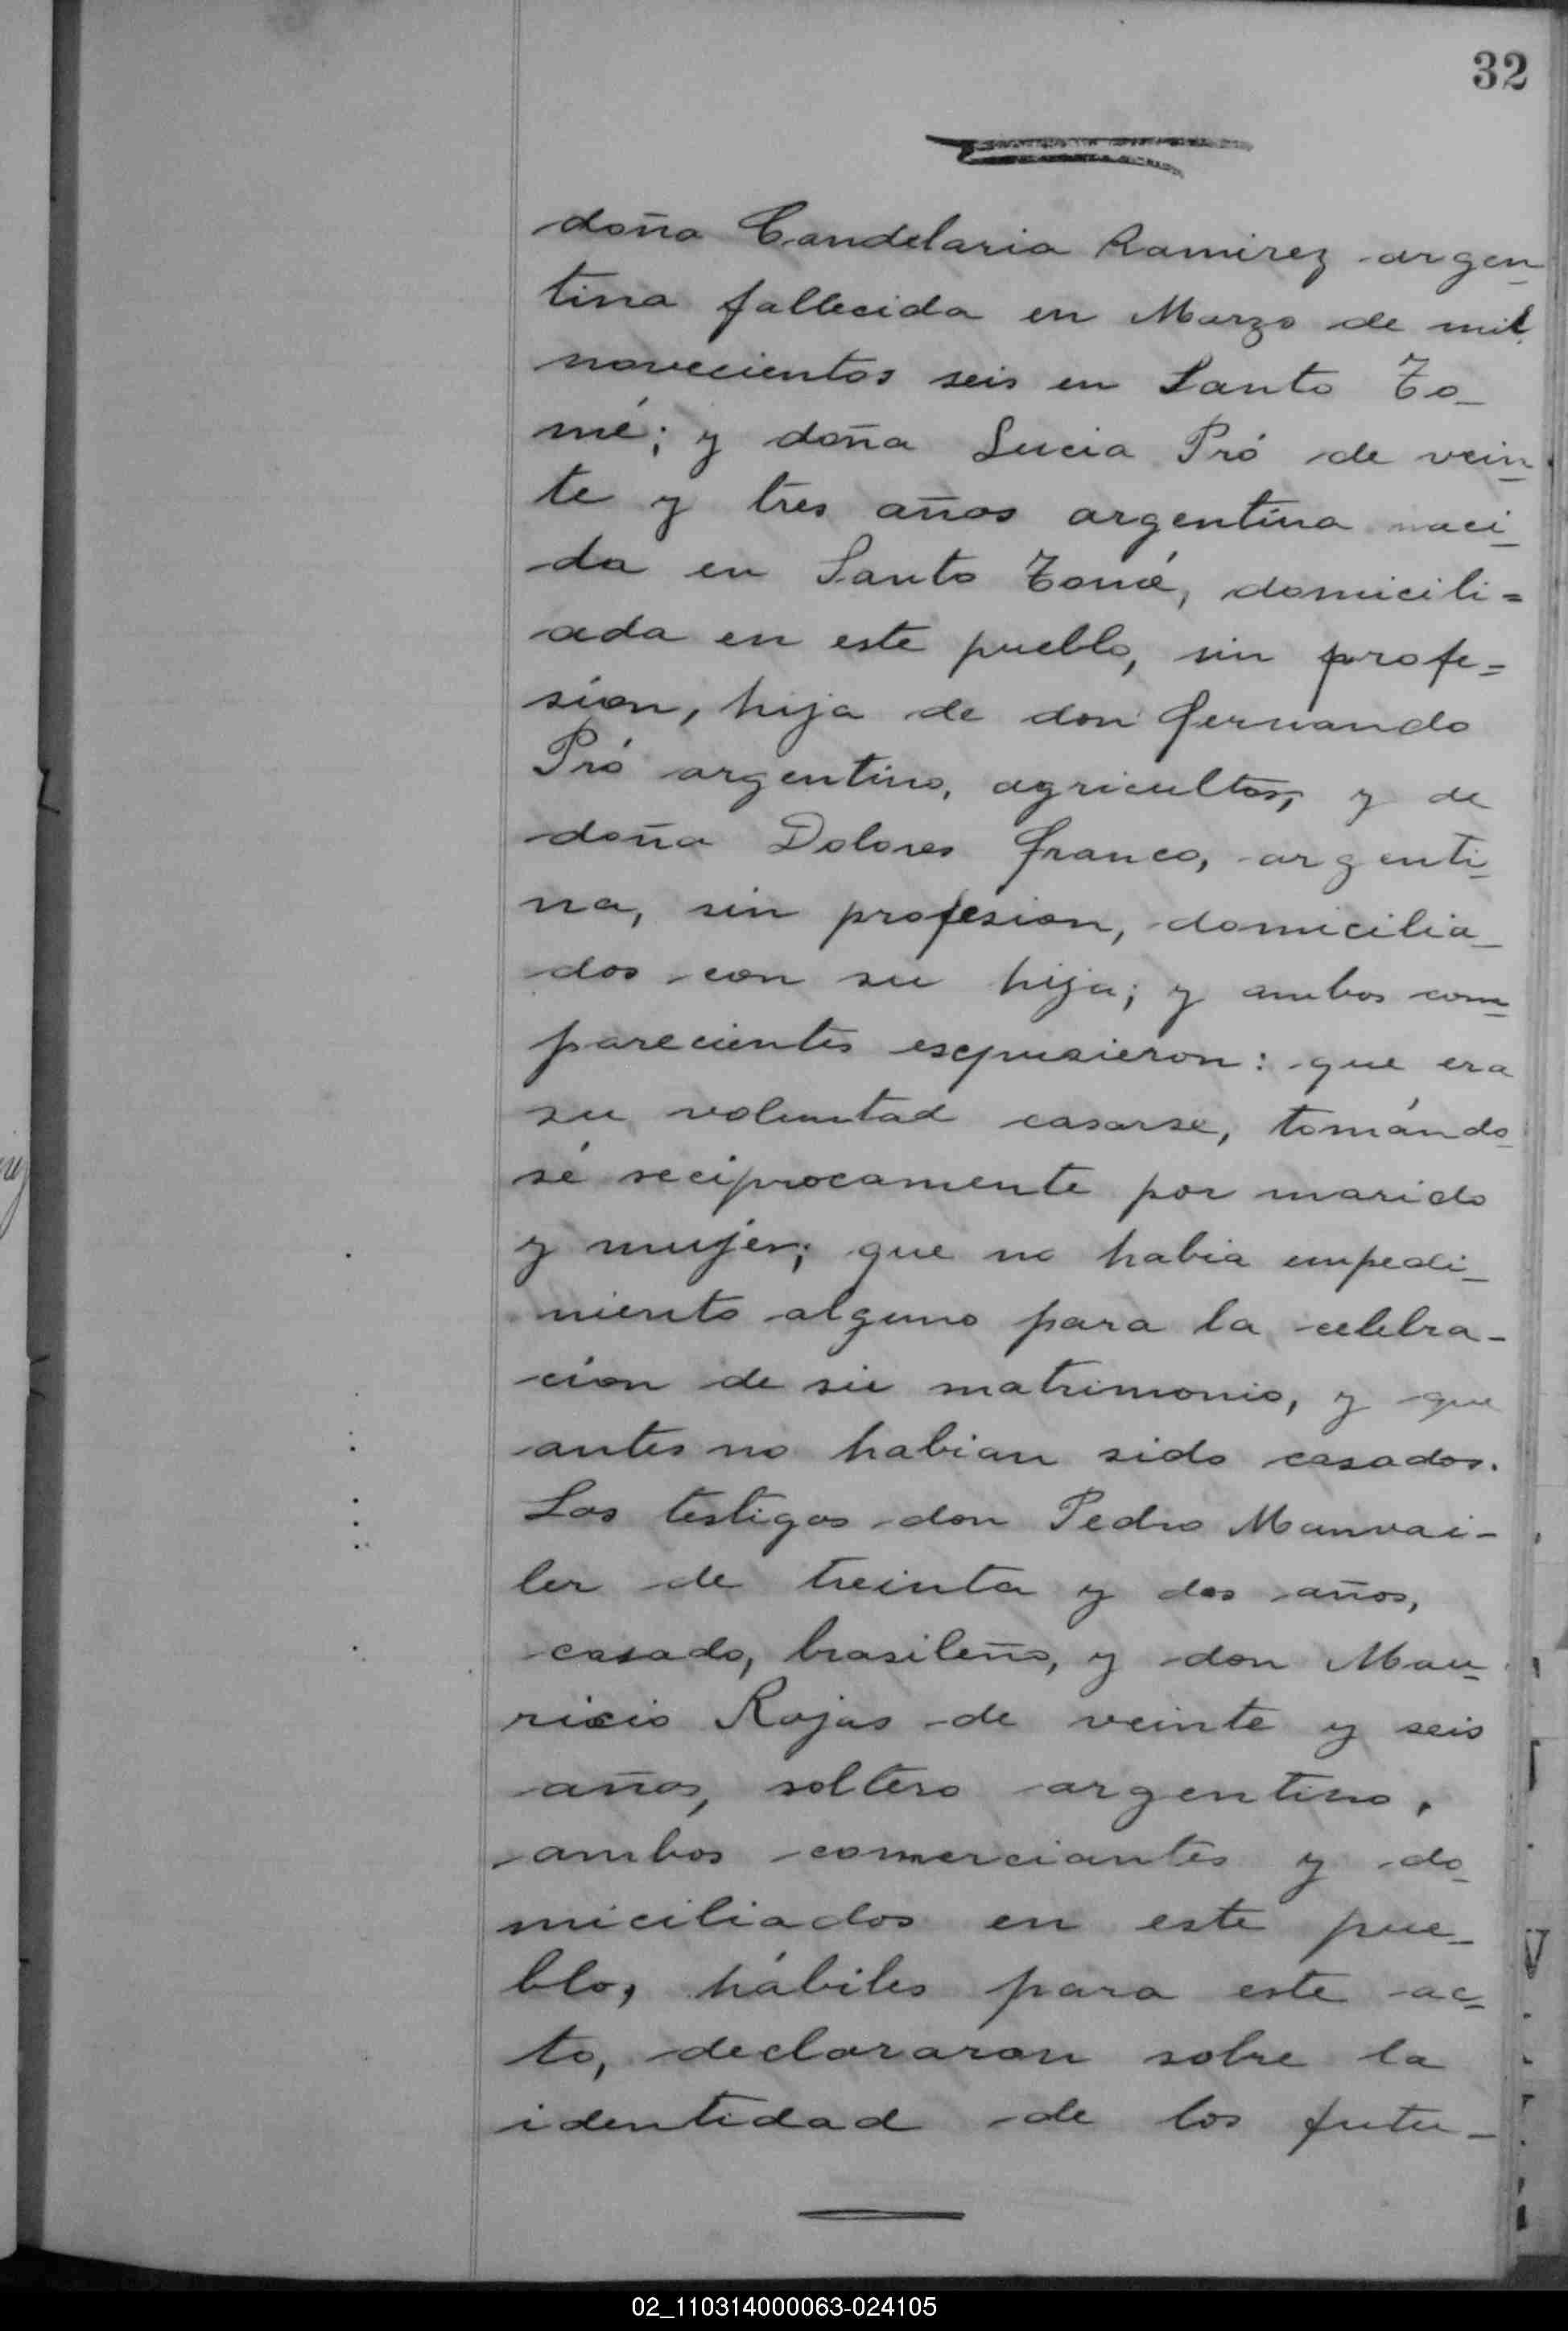 32
doña Candelaria Ramirez argen_
tina fallecida en Marzo de mil
novecientos seis en Santo To_
mé; y doña Lucia Pró de vein_
te y tres años argentina naci_
da en Santo Tomé, domicili=
ada en este pueblo, sin profe=
sion, hija de don Fernando
Pró argentino, agricultor, y de
doña Dolores Franco, argenti_
na, sin profesion, domicilia_
dos con su hija; y ambos com_
parecientes espusieron: que era
su voluntad casarse, tomándo_
sé reciprocamente por marido
y mujer; que no habia impedi_
miento alguno para la celebra-
cion de su matrimonio, y que
antes no habian sido casados.
Los testigos don Pedro Manvai-
ler de treinta y dos años,
casado, brasileño, y don Mau_
ricio Rojas de veinte y seis
años, soltero argentino,
ambos comerciantes y do_
miciliados en este pue_
blo, hábiles para este ac_
to, declararon sobre la
identidad de los futu_
02_110314000063-024105